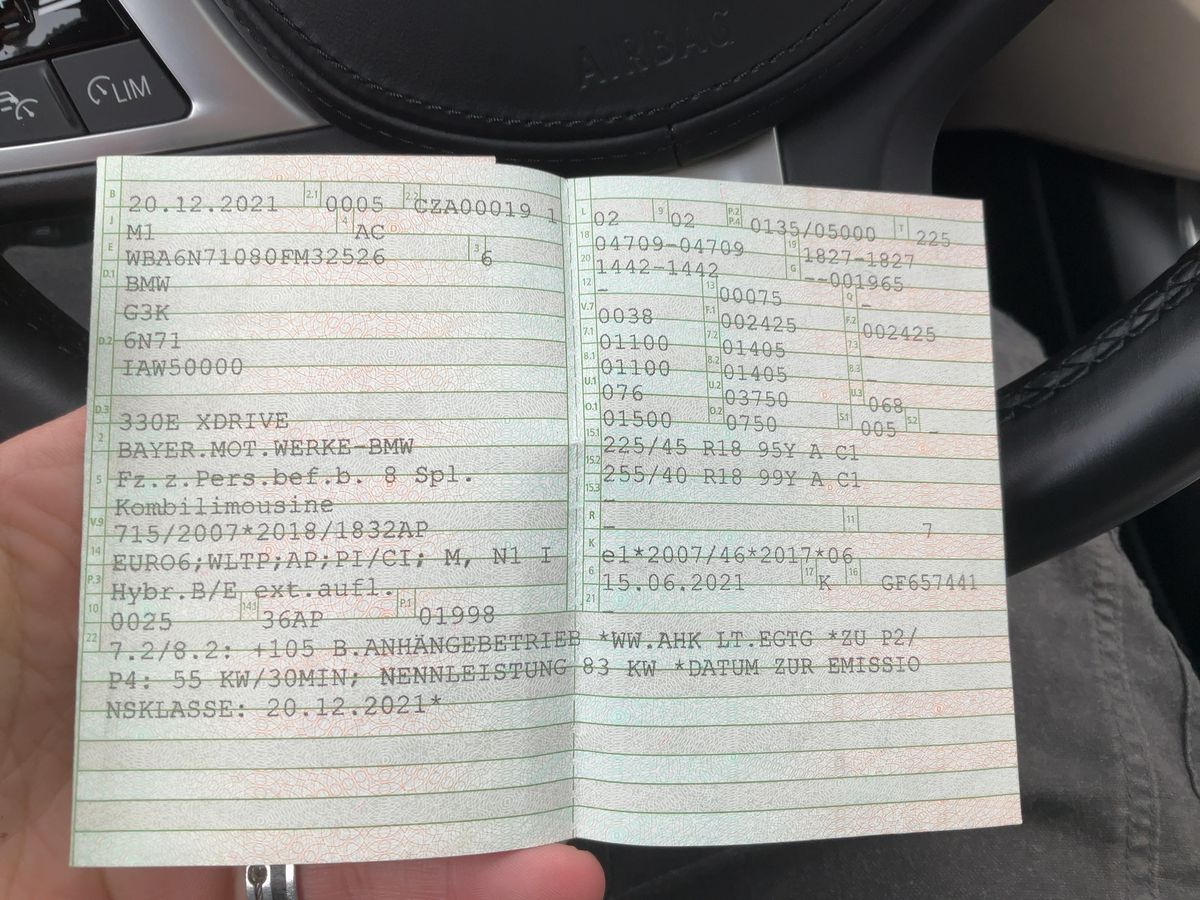 LIM
AIRBAG
B 20.12.2021 2.1 0005 2.2 CZA00019 1
J M1 4 AC
E WBA6N71080FM32526 3 6
D.1 BMW
G3K
D.2 6N71
IAW50000
D.3 330E XDRIVE
2 BAYER.MOT.WERKE-BMW
5 Fz.z.Pers.bef.b. 8 Spl.
Kombilimousine
V.9 715/2007*2018/1832AP
14 EURO6;WLTP;AP;PI/CI; M, N1 I
P.3 Hybr.B/E ext.aufl.
10 0025 14.1 36AP P.1 01998
L 02 9 02 P.2 P.4 0135/05000 T 225
18 04709-04709 19 1827-1827
20 1442-1442 G --001965
12 - 13 00075 Q -
V.7 0038 F.1 002425 F.2 002425
7.1 01100 7.2 01405 7.3 -
8.1 01100 8.2 01405 8.3 -
U.1 076 U.2 03750 U.3 068
O.1 01500 O.2 0750 S.1 005 S.2 -
15.1 225/45 R18 95Y A C1
15.2 255/40 R18 99Y A C1
15.3 -
R - 11 7
K e1*2007/46*2017*06
6 15.06.2021 17 K 16 GF657441
21 -
22 7.2/8.2: +105 B.ANHÄNGEBETRIEB *WW.AHK LT.EGTG *ZU P2/
P4: 55 KW/30MIN; NENNLEISTUNG 83 KW *DATUM ZUR EMISSIO
NSKLASSE: 20.12.2021*